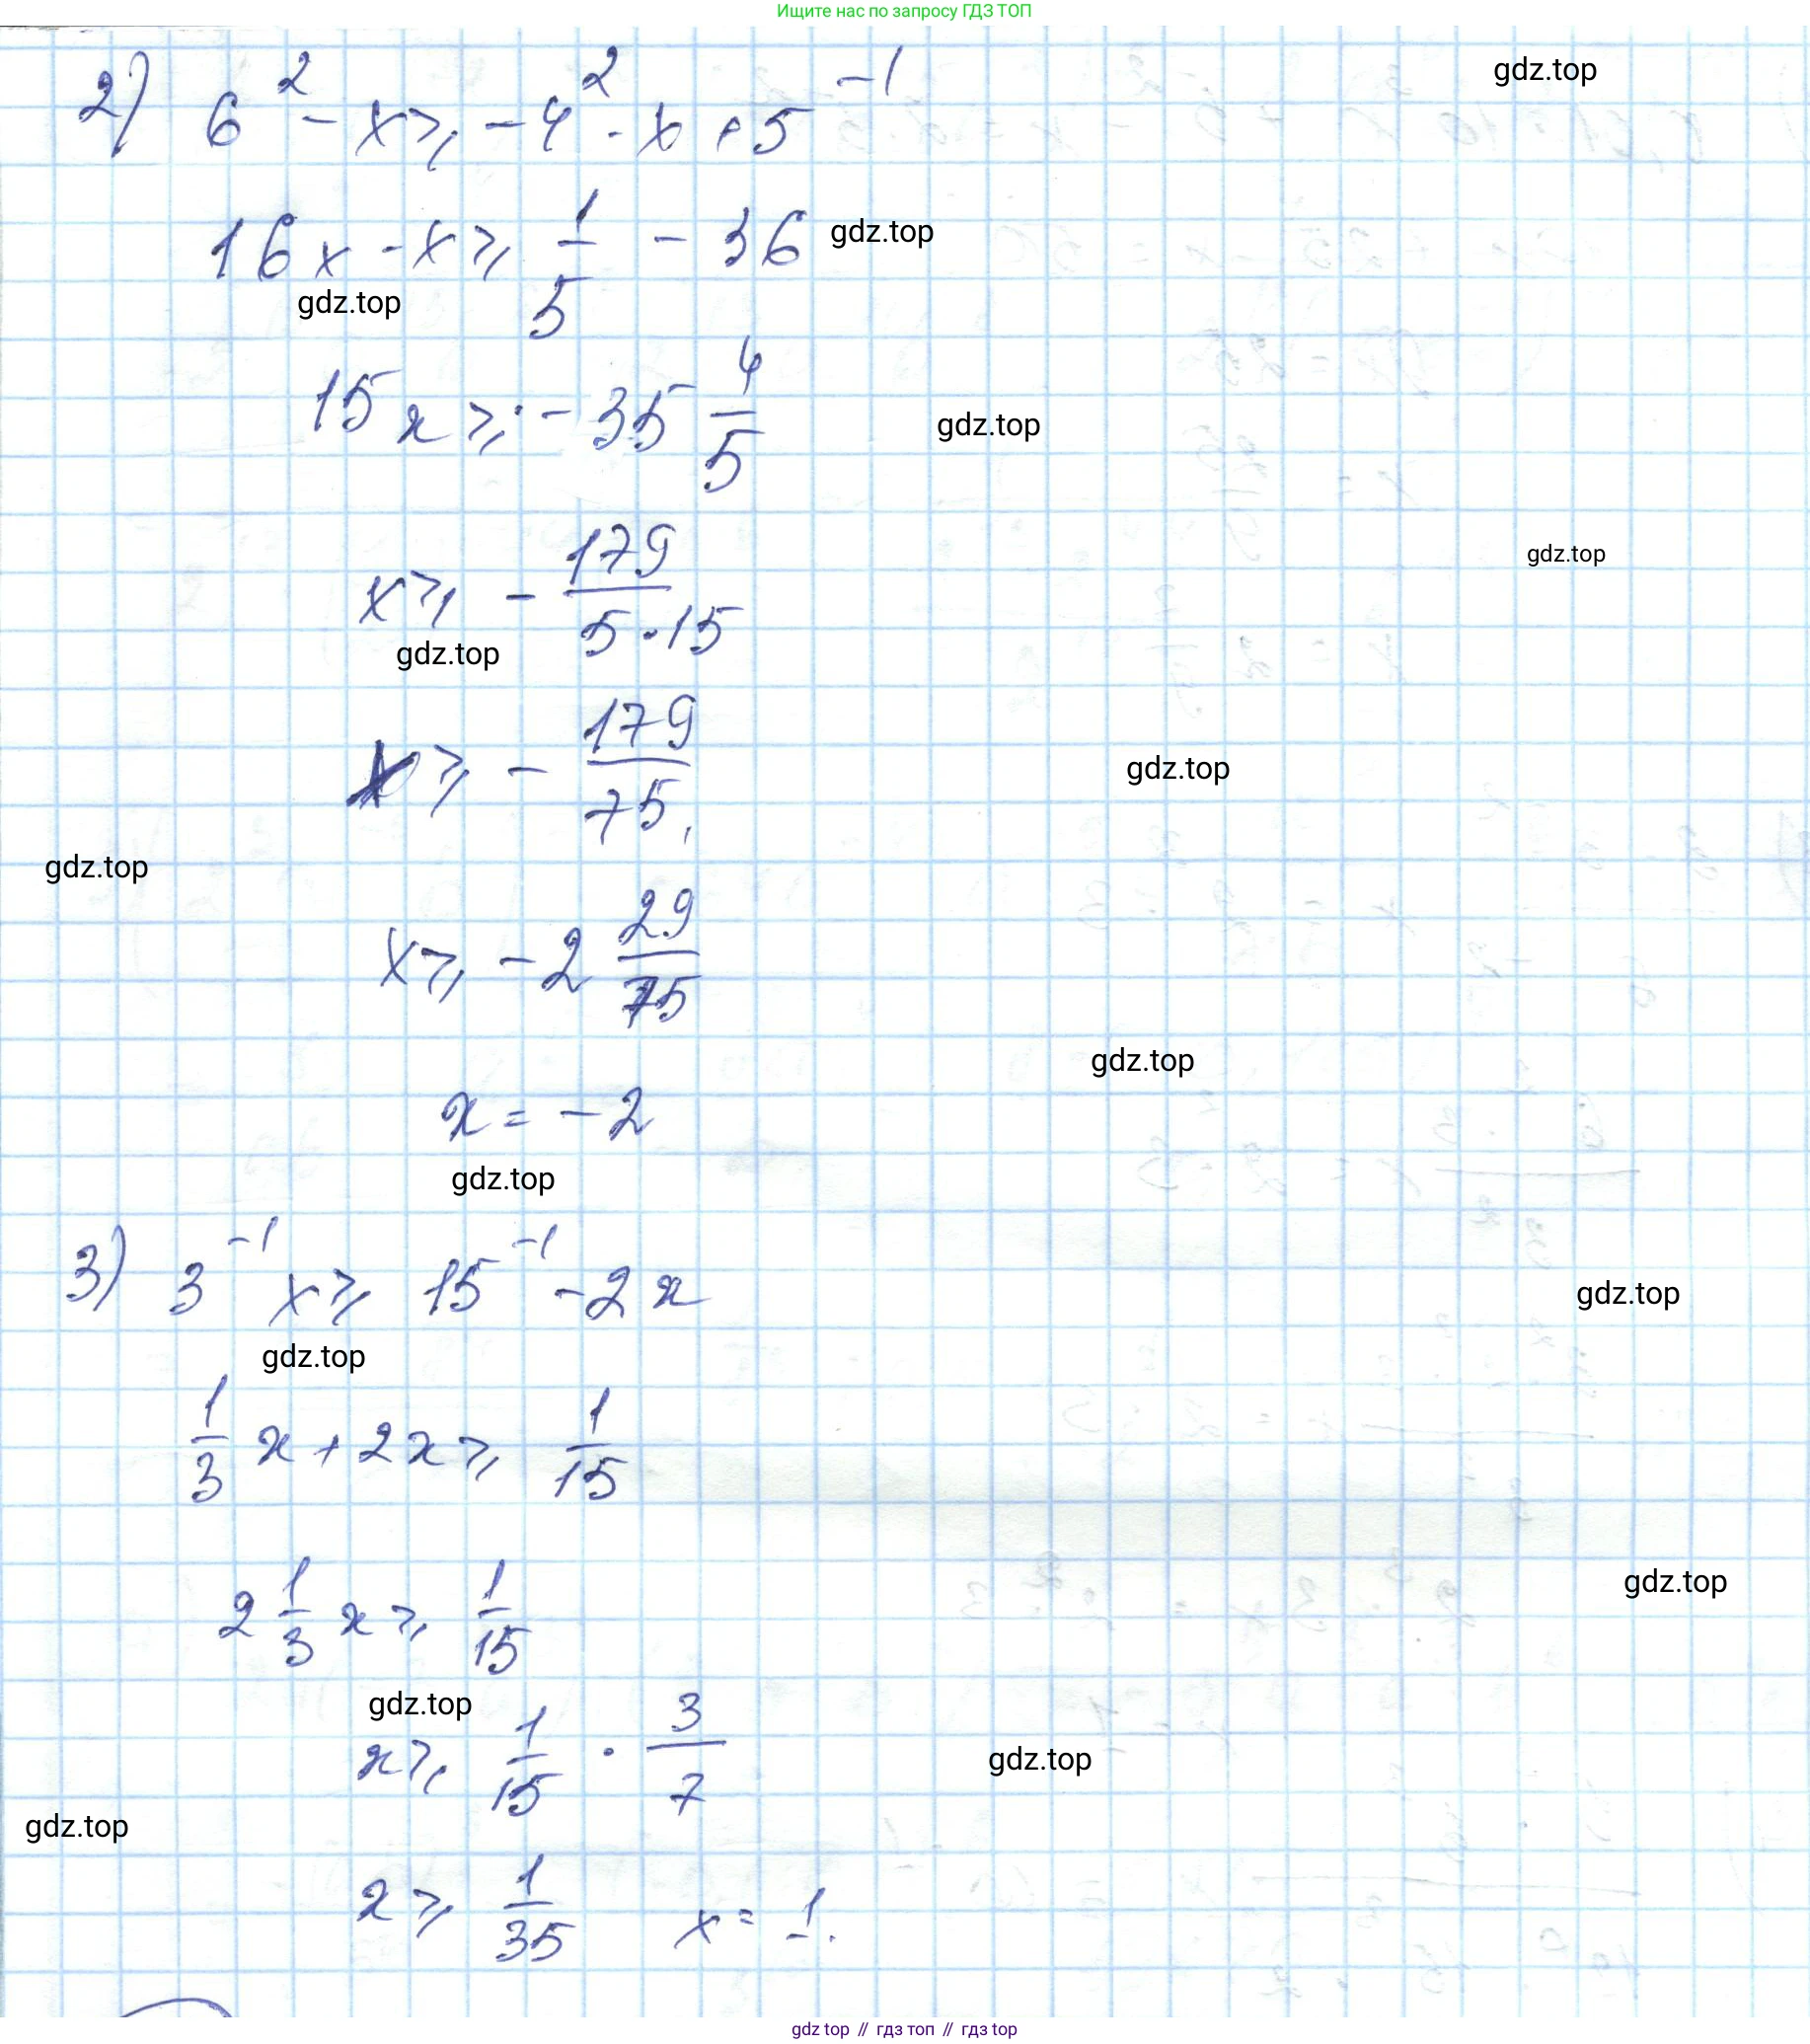 Ищите нас по запросу ГДЗ ТОП
gdz.top
2) 6² - x ⩾ -4² · x + 5⁻¹
16x - x ⩾ 1/5 - 36
gdz.top
gdz.top
15x ⩾ -35 4/5
gdz.top
gdz.top
x ⩾ - 179/(5·15)
gdz.top
x ⩾ - 179/75,
gdz.top
gdz.top
x ⩾ -2 29/75
gdz.top
x = -2
gdz.top
3) 3⁻¹ x ⩾ 15⁻¹ - 2x
gdz.top
gdz.top
1/3 x + 2x ⩾ 1/15
2 1/3 x ⩾ 1/15
gdz.top
gdz.top
x ⩾ 1/15 · 3/7
gdz.top
gdz.top
x ⩾ 1/35 x = 1.
gdz top // гдз топ // гдз top